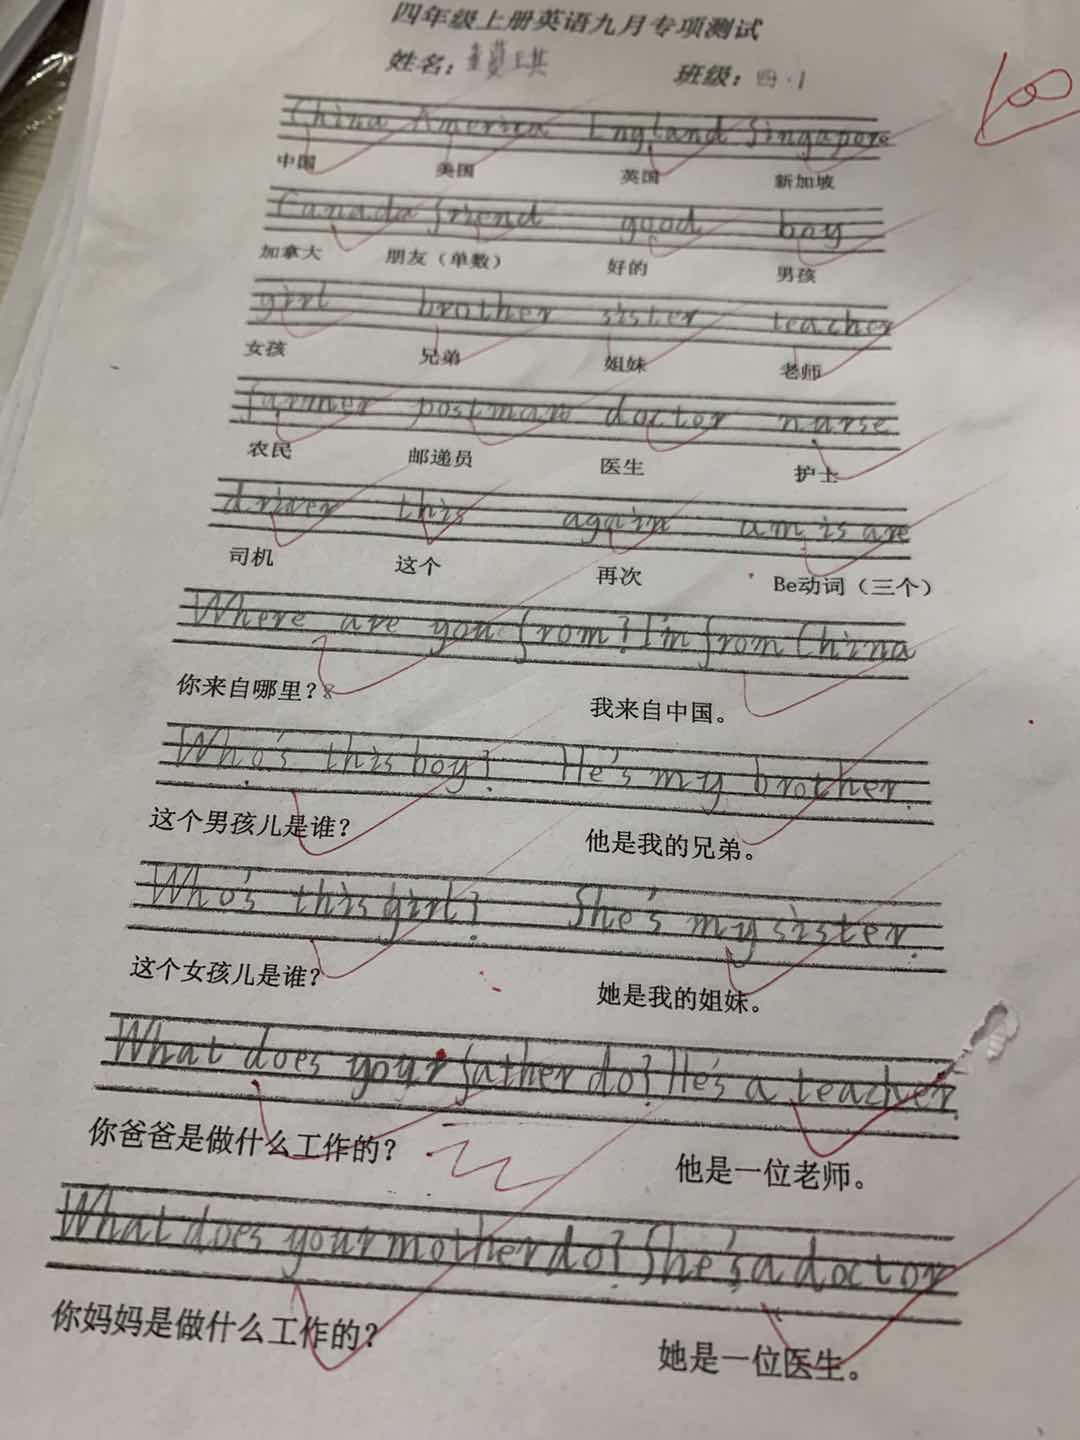 四年级上册英语九月专项测试
姓名: 班级: 四.1
100
China America England Singapore
中国 美国 英国 新加坡
Canada friend good boy
加拿大 朋友（单数） 好的 男孩
girl brother sister teacher
女孩 兄弟 姐妹 老师
farmer postman doctor nurse
农民 邮递员 医生 护士
driver this again am is are
司机 这个 再次 Be动词（三个）
Where are you from? I'm from China
你来自哪里？8 我来自中国。
Who's this boy? He's my brother.
这个男孩儿是谁？ 他是我的兄弟。
Who's this girl? She's my sister.
这个女孩儿是谁？ 她是我的姐妹。
What does your father do? He's a teacher.
你爸爸是做什么工作的？ 他是一位老师。
What does your mother do? She's a doctor
你妈妈是做什么工作的？ 她是一位医生。